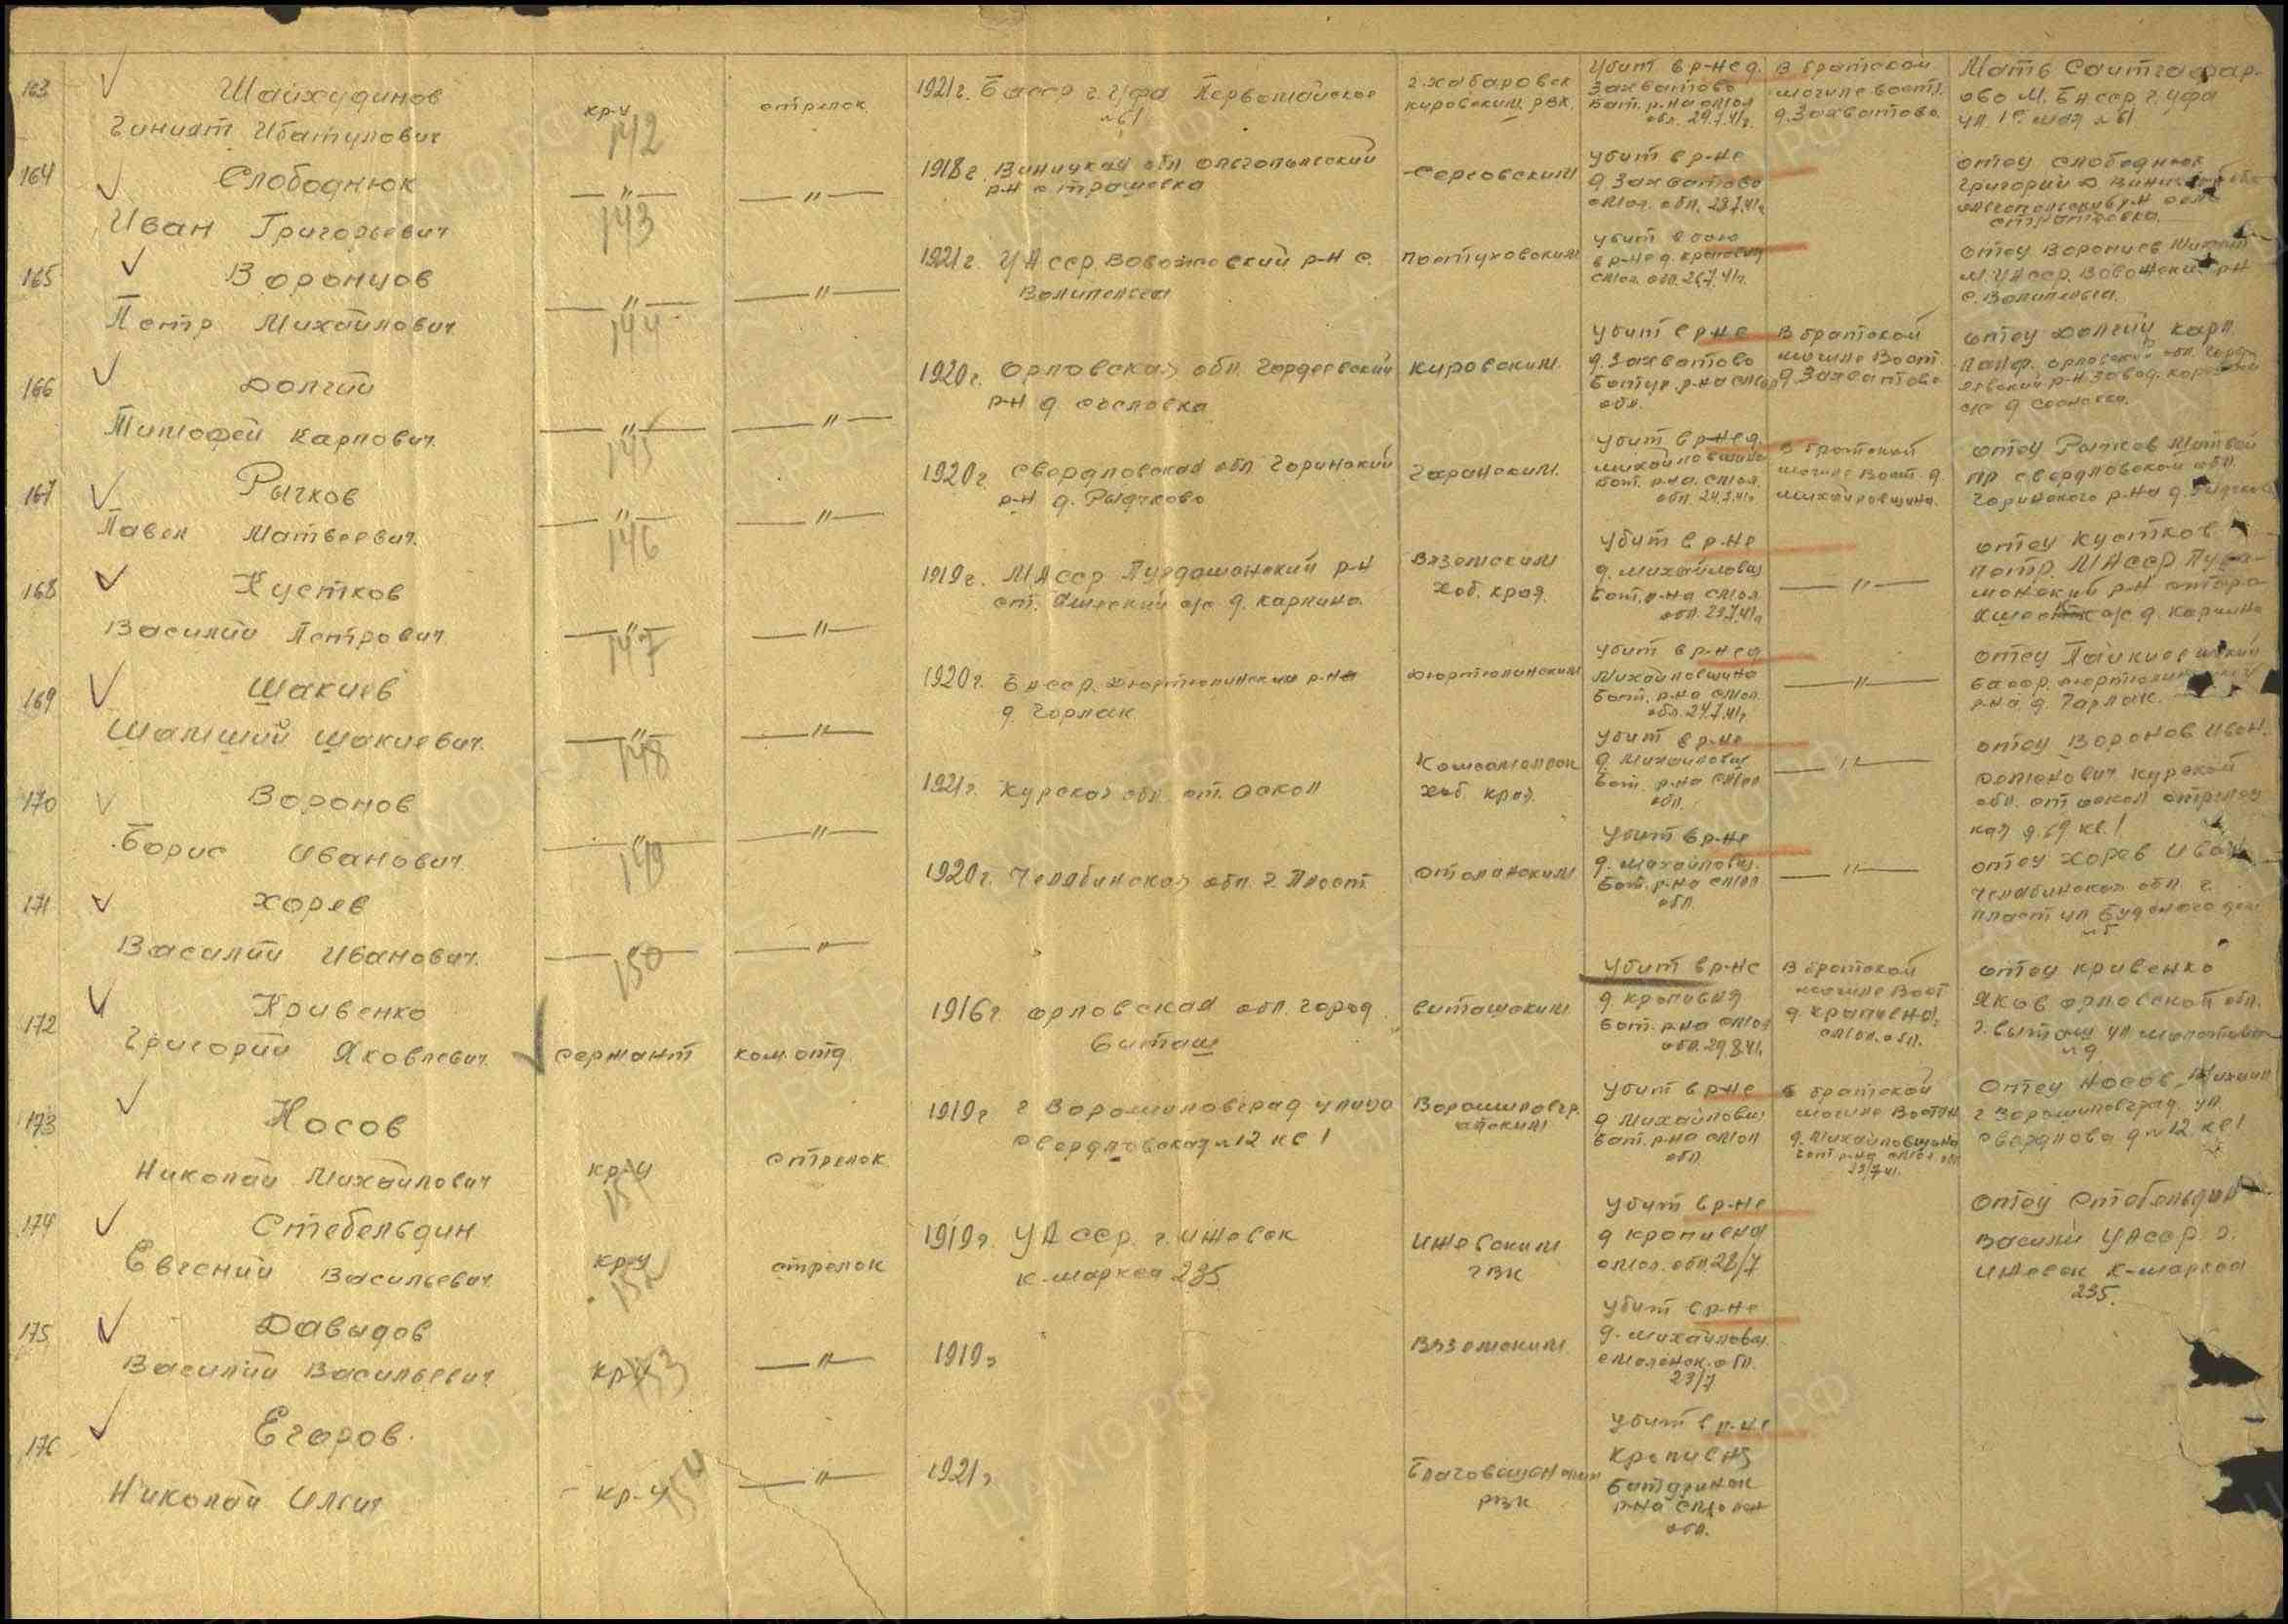 163
Шайхудинов
Гиният Ибатулович
кр-ц
142
стрелок
1921г. Басср г. Уфа Первомайская
№61
г. Хабаровск
кировским РВК.
Убит в р-не д.
Захватово
Бат. р-на смол
обл. 29.7.41г.
В братской
могиле вост.
д. Захватово.
Мать Саитгафар-
ово М. БАССР г. Уфа
ул. 1е мая №61
164
Слободнюк
Иван Григорьевич
—"—
143
—"—
1918г. Виницкая обл Ольгопольский
р-н с трашовка
Серговским
Убит в р-не
д Захватово
смол. обл. 29.7.41г
отец Слободнюк
Григорий
165
Воронцов
Петр Михайлович
—"—
144
—"—
1921г. УАССР. Вовожский р-н с.
Волипельга
Пастуховским
Убит в бою
в р-не д. Крапивня
смол. обл. 26.7.41г.
отец Воронцов Михаил
М. УАССР. Вовожский р-н
с. Волипельга.
166
Долгий
Тимофей Карпович
—"—
145
—"—
1920г. Орловская обл. Гордеевский
р-н д сосновка
кировским
Убит в р-не
д. Захватово
Батур. р-на смол
обл.
В братской
могиле Вост.
д Захватово
отец Долгий Карп
167
Рычков
Павел Матвеевич
—"—
146
—"—
1920г. Свердловская обл Горинский
р-н д. Рычково
Гаринским.
Убит в р-не д.
Михайловщина
Бат. р-на. смол.
обл. 24.7.41г
В братской
могиле Вост. д.
Михайловщина.
отец Рычков Матвей
пр свердловской обл.
Горинского р-на д. Рычково
168
Кустков
Василий Петрович
—"—
147
—"—
1919г. МАССР Пурдашанский р-н
с/с д. Карнино.
Вяземским
Хаб. край.
Убит в р-не
д. Михайловщ
Бат. р-на смол
обл. 23.7.41г
—"—
отец Кустков
Петр. МАССР
с/с д. Карнино
169
Шакиев
Шамший Шакиевич.
—"—
148
—"—
1920г. БАССР. Дюртюлинский р-на
д. Горлак
Дюртюлинским
Убит в р-не д
Михайловщина
Бат. р-на смол.
обл. 24.7.41г
—"—
р-на д. Тарлак.
170
Воронов
Борис Иванович.
—"—
149
—"—
1921г. Курская обл. ст. Оскол
Комсомольск
Хаб. край.
Убит в р-не
д. Михайловщ
Бат. р-на смол
обл.
—"—
отец Воронов Иван.
Курской
обл. ст оскол
д. 69 кв. 1
171
Хорев
Василий Иванович.
—"—
150
—"—
1920г. Челябинская обл. г. Пласт
Убит в р-не
д. Михайловщ.
Бат. р-на смол
обл.
—"—
отец Хорев Иван
Челябинская обл. г.
Пласт ул Буденого дом
172
Кривенко
Григорий Яковлевич.
сержант
ком. отд.
1916г. Орловская обл. город
Биташ
Биташским
Убит в р-не
д Крапивня
Бат. р-на смол
обл. 29.8.41.
В братской
могиле Вост
д. Крапивна.
смол. обл.
отец Кривенко
Яков Орловской обл.
№9
173
Носов
Николай Михайлович
кр-ц
151
стрелок
1919г г Ворошиловград улица
Свердловская №12 кв 1
Ворошиловгр.
адским
Убит в р-не
д Михайловщ
Бат. р-на смол
обл.
в братской
могиле Восточ
д. Михайловщина
Бат р-на смол. обл
23/7 41.
отец Носов Михаил
г Ворошиловград ул
свердлова д №12 кв 1
174
Стебельдин
Евгений Васильевич.
кр-ц
152
стрелок
1919г. УАССР. г. Ижевск
К-маркса 235
Ижевским
ГВК
Убит в р-не
д Крапивна
смол. обл. 28/7
отец Стебельдин
Василий УАССР. г.
Ижевск К-маркса
235.
175
Давыдов
Василий Васильевич
кр-ц
153
—"—
1919г
Вяземским
Убит в р-не
д. Михайловщ.
смоленск. обл.
23/7
176
Егаров.
Николай Ильич
кр-ц
154
—"—
1921г
Благовещенским
РВК
Убит в р-не
Крапивня
Батуринск
р-на смолен
обл.